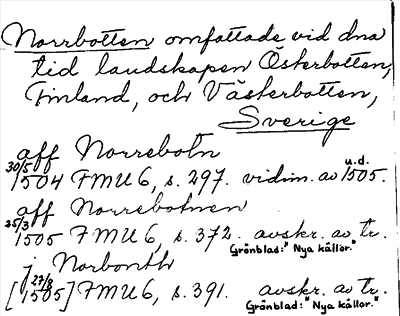 Norrbotten omfattade vid dna
tid landskapen Österbotten,
Finland, och Västerbotten,
Sverige
aff Norrebotn
30/5 1504 FMU 6, s. 297. vidim. av u.d. 1505.
aff Norrebotnen
25/3 1505 FMU 6, s. 372. avskr. av tr.
Grönblad: "Nya källor."
j Norbonth
[27/8 1505] FMU 6, s. 391. avskr. av tr.
Grönblad: "Nya källor."